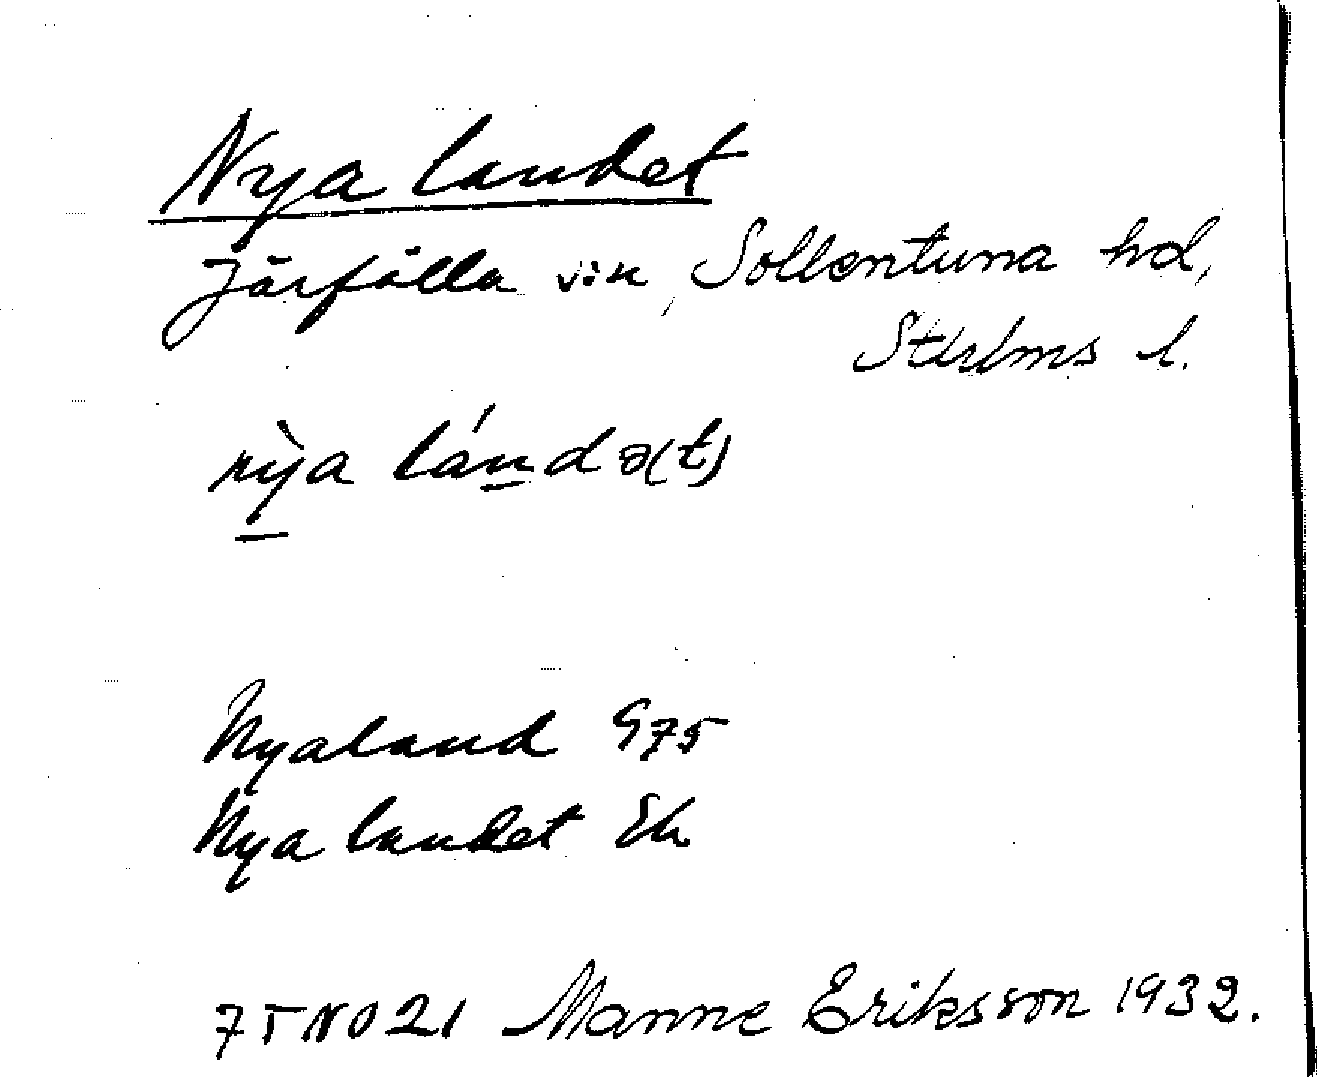 Nya landet
Järfälla sn, Sollentuna hd,
Sthlms l.
nỳa lánd ə(t)
Nyaland G75
Nya landet Ek
75 NO 21 Manne Eriksson 1932.